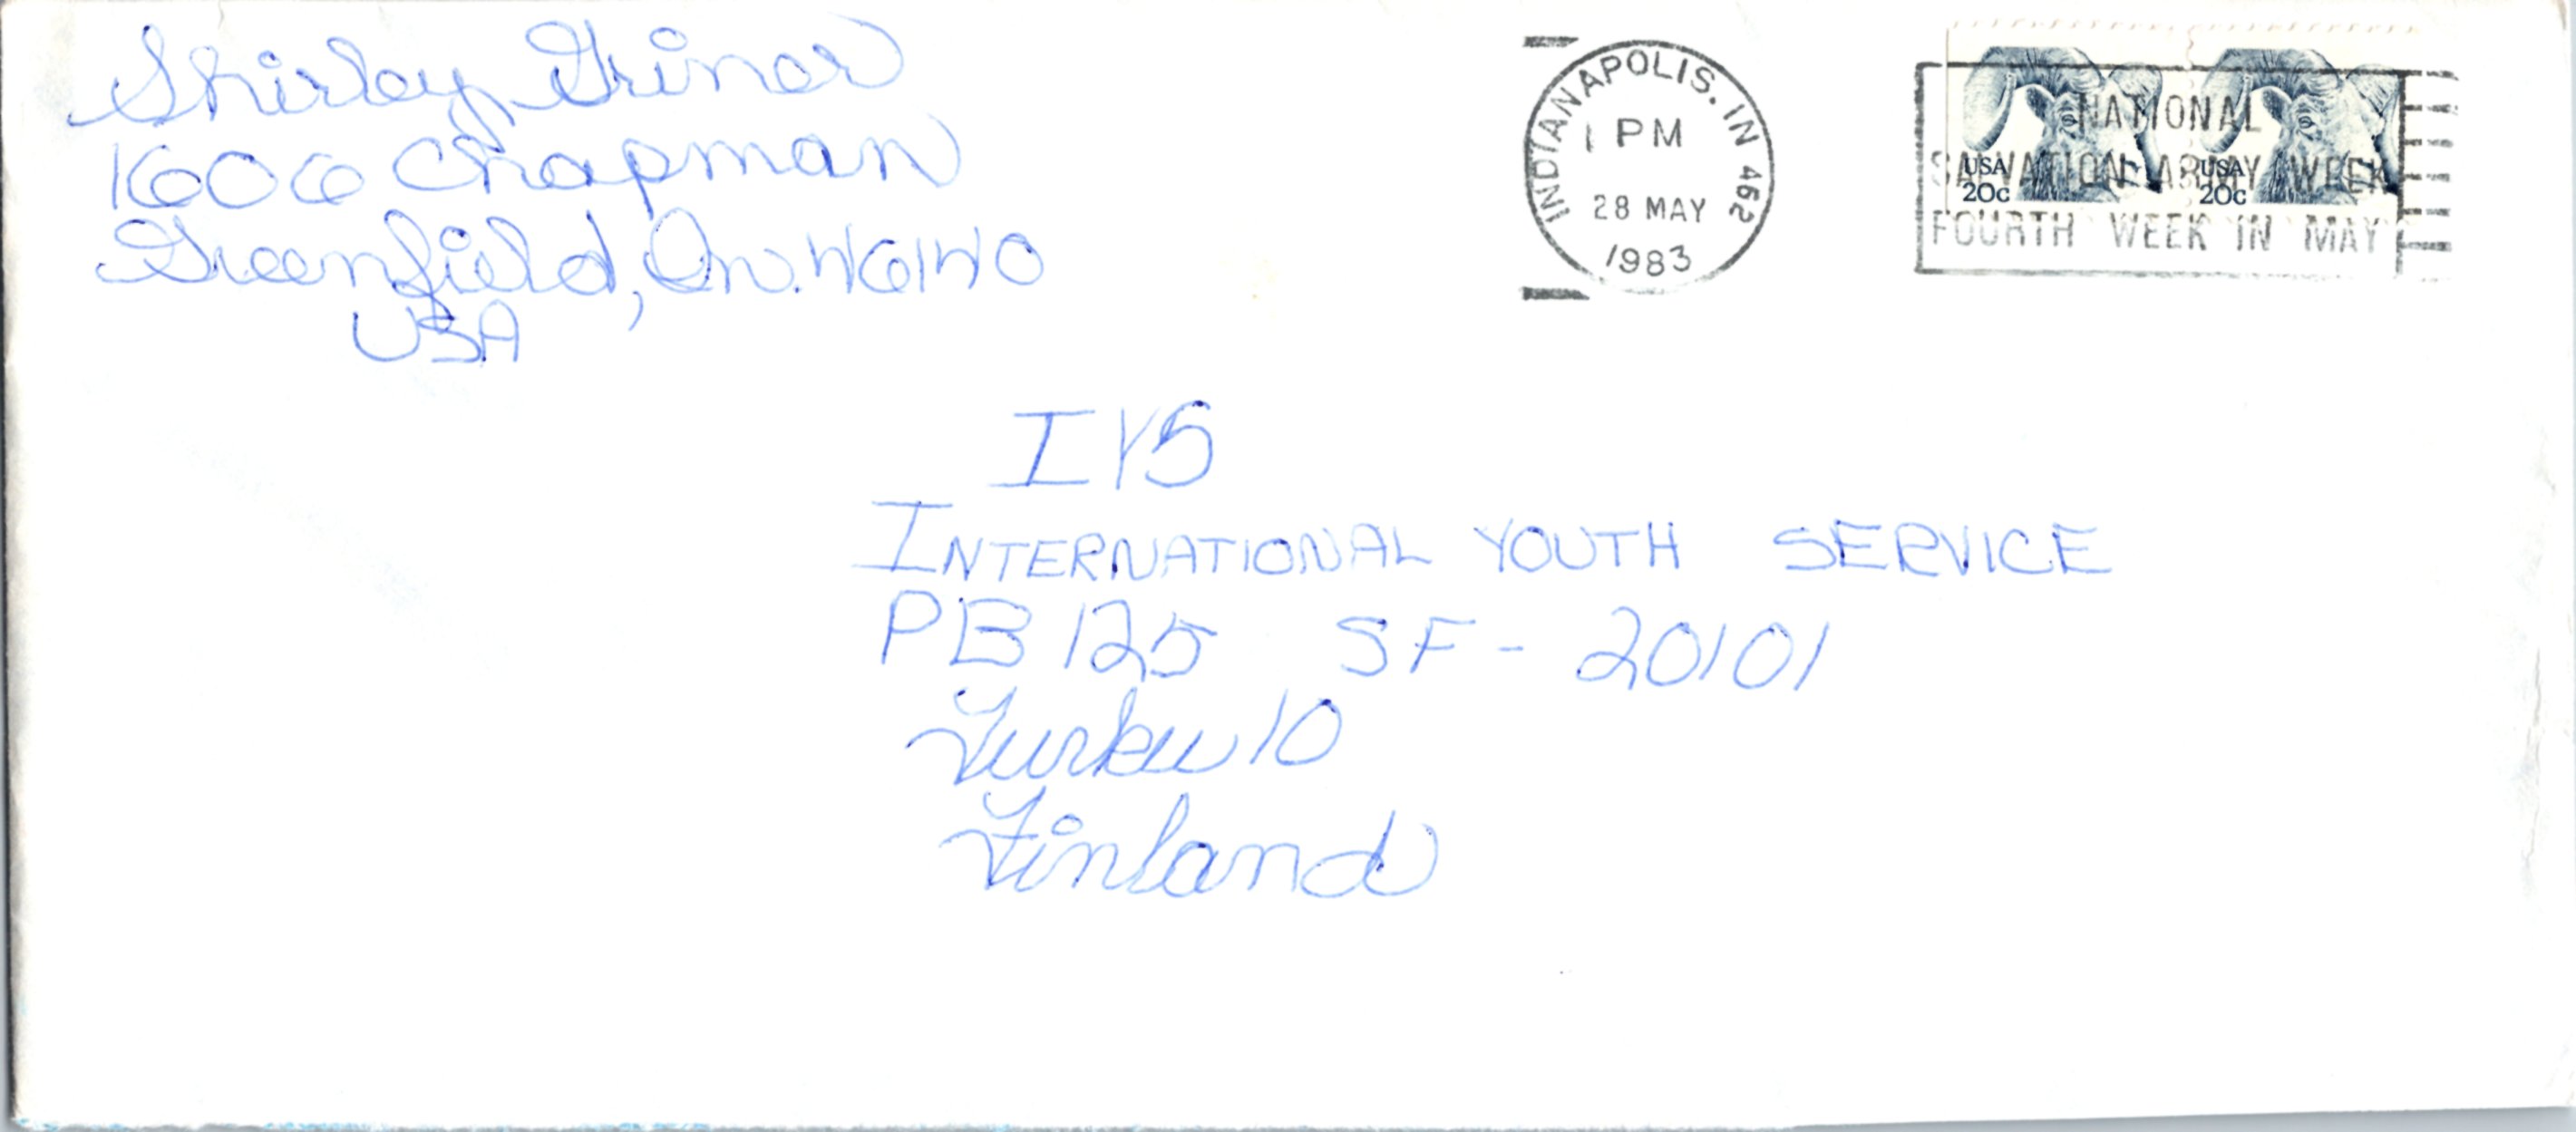 Shirley Griner
1606 Chapman
Greenfield, In. 46140
USA
INDIANAPOLIS. IN 462
1 PM
28 MAY
1983
USA
20c
USA
20c
NATIONAL
SALVATION ARMY WEEK
FOURTH WEEK IN MAY
IYS
INTERNATIONAL YOUTH SERVICE
PB 125 SF - 20101
Turku 10
Finland